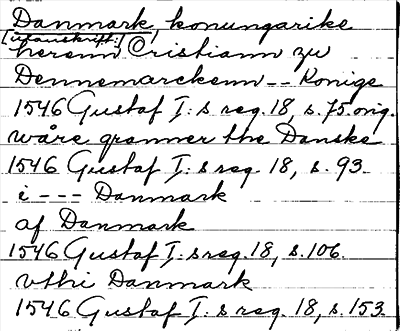 Danmark, konungarike
[utanskrift:]
herenn Cristiann zu
Dennemarckenn -- Konige
1546 Gustaf I:s reg. 18, s. 75 orig.
wåre granner the Danske
1546 Gustaf I:s reg. 18, s. 93
i --- Danmark
af Danmark
1546 Gustaf I:s reg. 18, s. 106
vthi Danmark
1546 Gustaf I:s reg. 18, s. 153